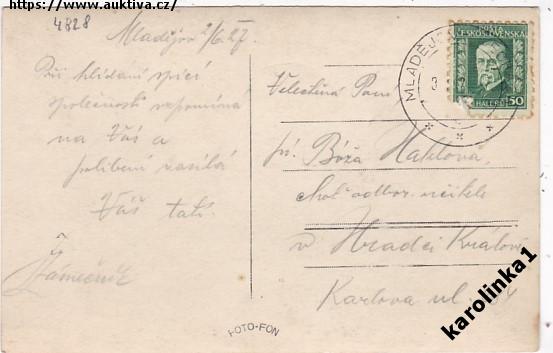 https://www.auktiva.cz/
4828
Mladějov 2/6.27.
Při hlídání spící
společnosti vzpomíná
na Vás a
políbení zasílá
Váš tatí.
Zámečník
FOTO-FON
MLADĚJO
POŠTA
ČESKOSLOVENSKÁ
HALÉŘŮ 50
Velectěná Paní
pí. Bóža Haklová
choť odbor. učitele
v Hradci Králové
Karlova ul.
karolinka1